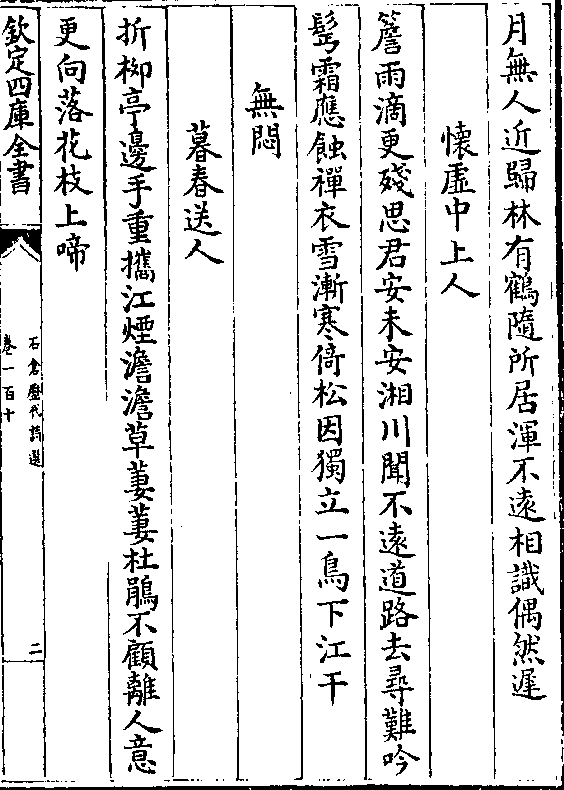 月無人近歸林有鶴隨所居渾不遠相識偶然遲
懷虛中上人
簷雨滴更殘思君安未安湘川聞不遠道路去尋難吟
髩霜應蝕禪衣雪漸寒倚松因獨立一鳥下江干
無悶
暮春送人
折柳亭邊手重攜江煙澹澹草萋萋杜鵑不顧離人意
更向落花枝上啼
欽定四庫全書
石倉歷代詩選
卷一百十
二